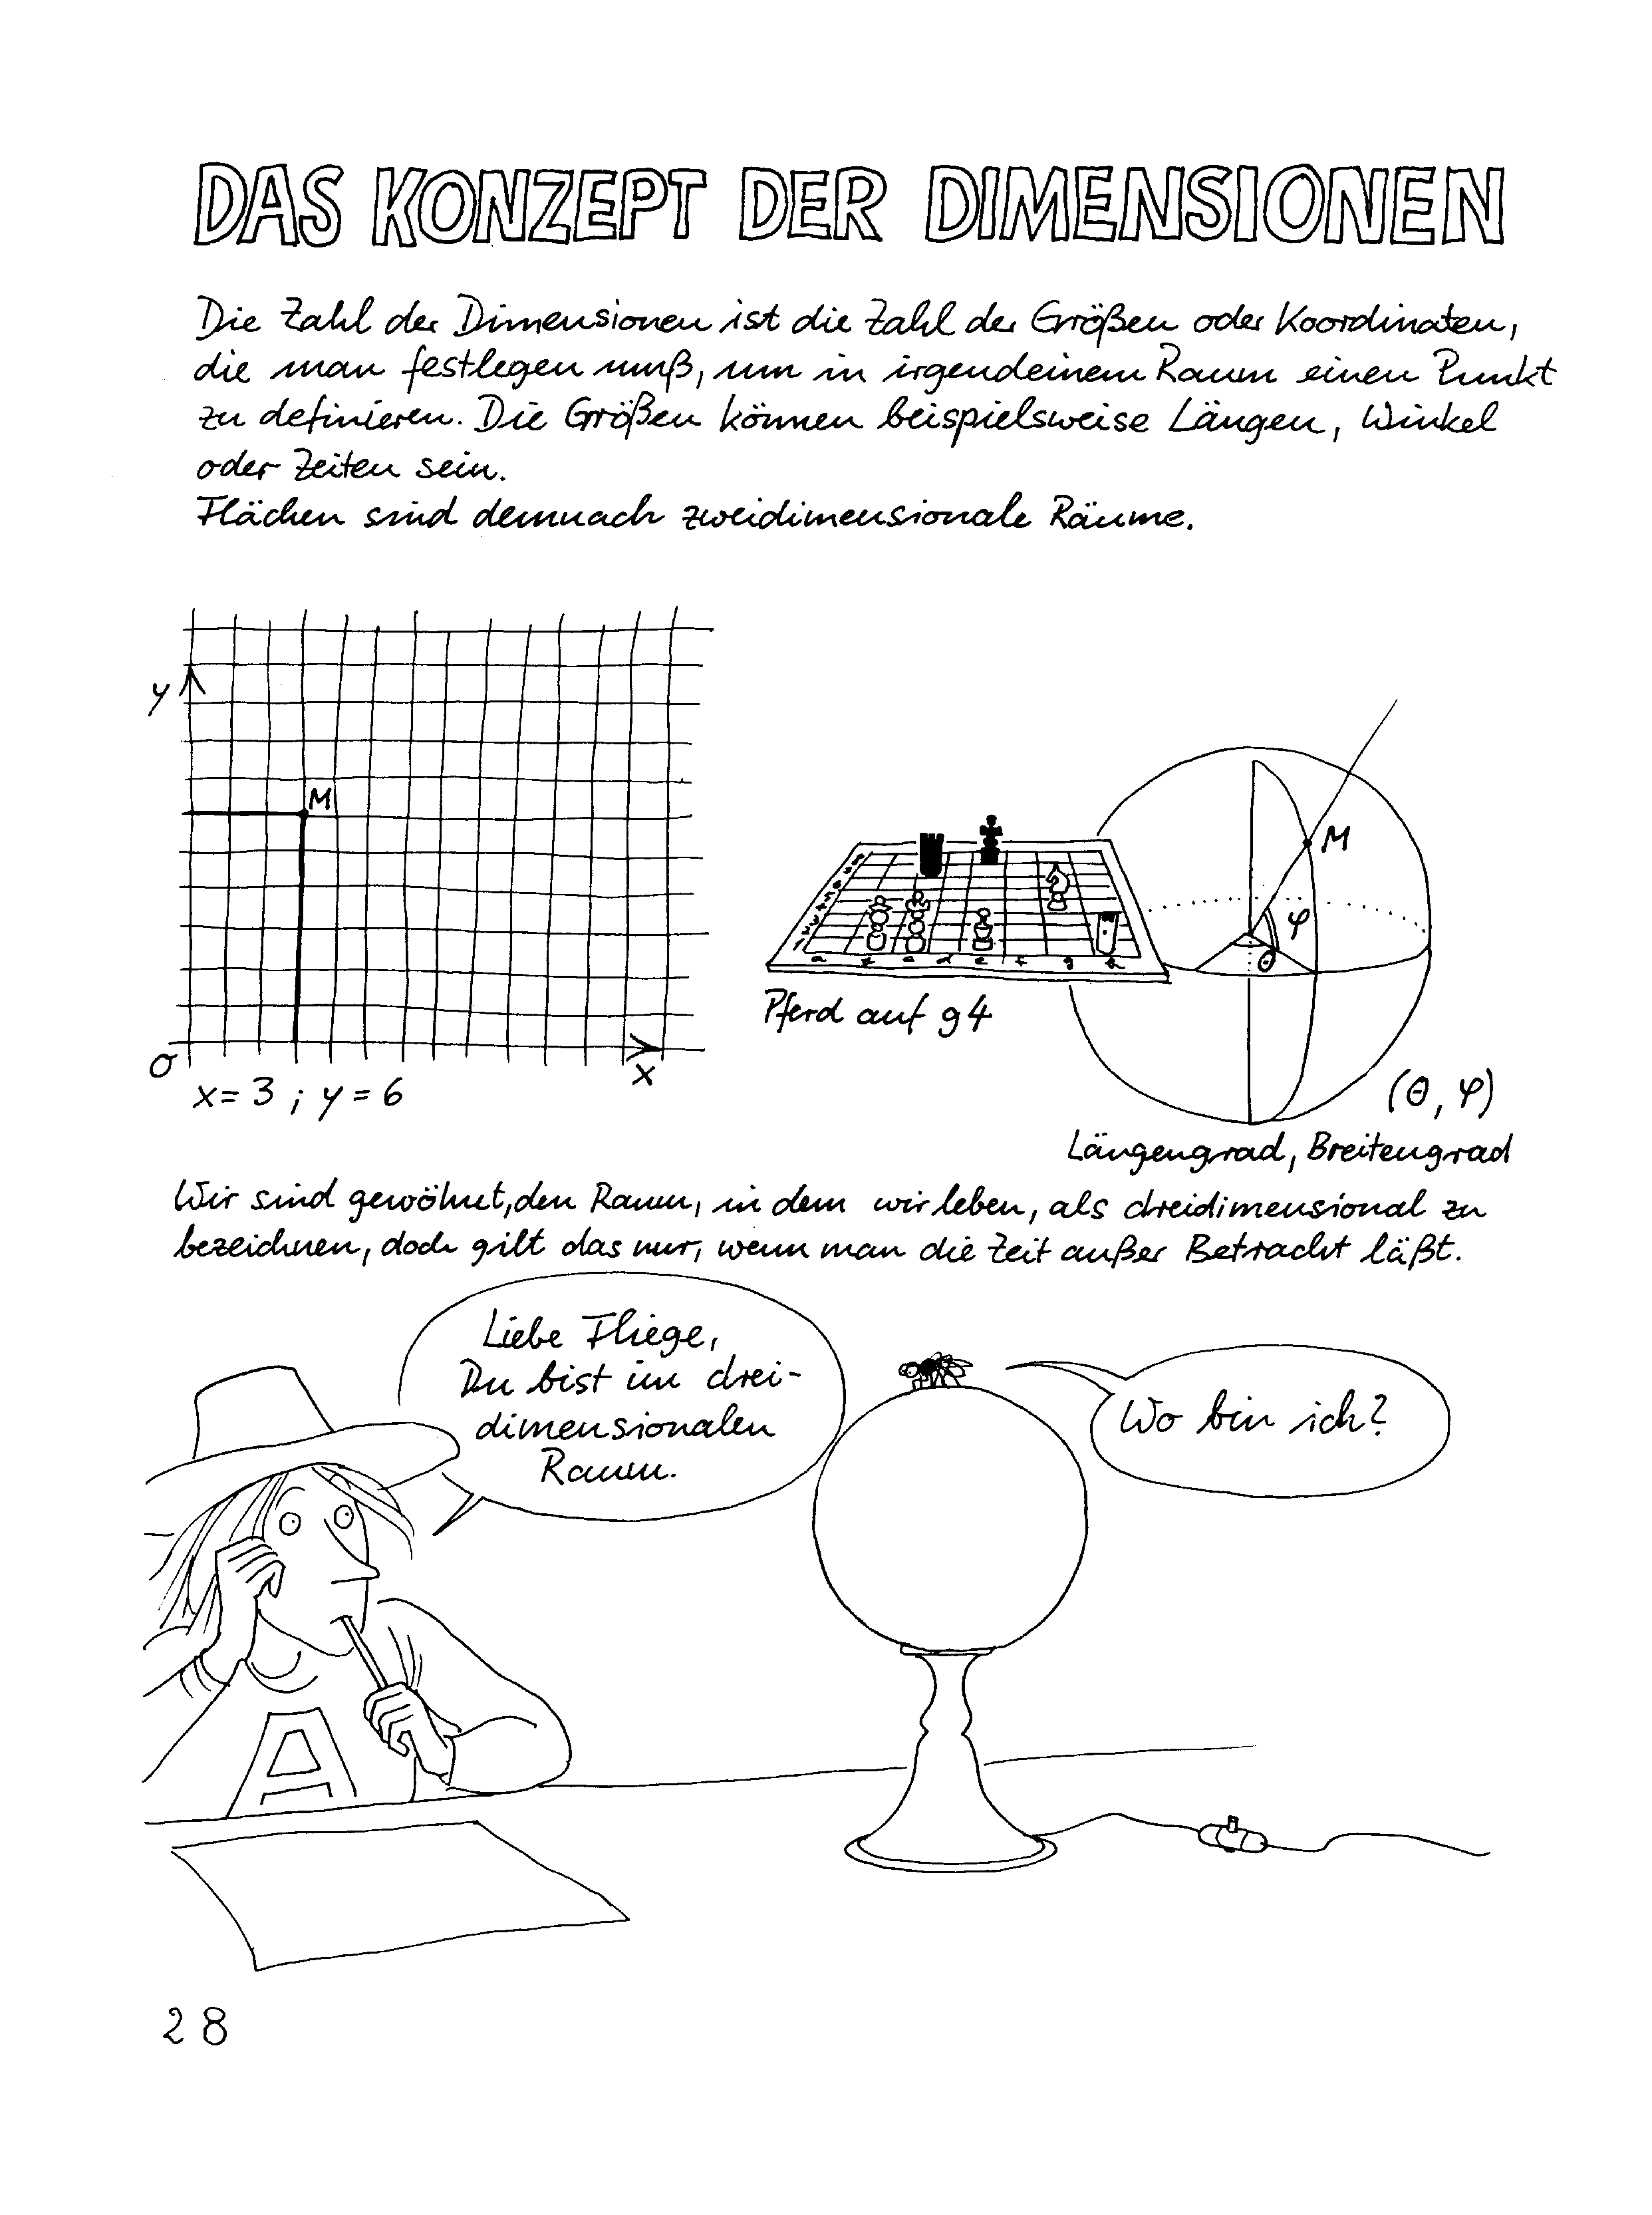 DAS KONZEPT DER DIMENSIONEN
Die Zahl der Dimensionen ist die Zahl der Größen oder Koordinaten,
die man festlegen muß, um in irgendeinem Raum einen Punkt
zu definieren. Die Größen können beispielsweise Längen, Winkel
oder Zeiten sein.
Flächen sind demnach zweidimensionale Räume.
y
M
O
x
x=3 ; y=6
a
c d e f g h
Pferd auf g4
M
φ
θ
(θ, φ)
Längengrad, Breitengrad
Wir sind gewöhnt, den Raum, in dem wir leben, als dreidimensional zu
bezeichnen, doch gilt das nur, wenn man die Zeit außer Betracht läßt.
Liebe Fliege,
Du bist im drei-
dimensionalen
Raum.
Wo bin ich?
A
28